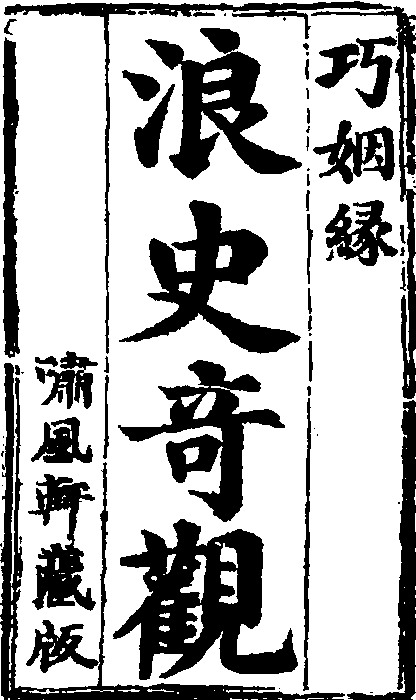 巧姻緣
浪史奇觀
嘯風軒藏版